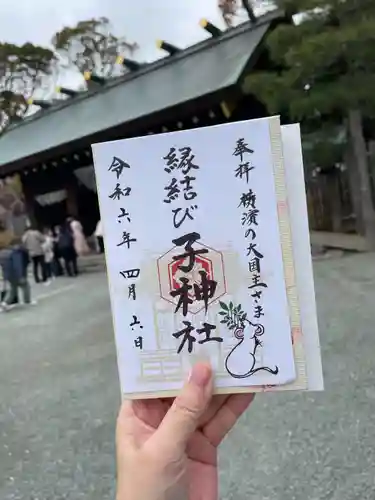 奉拝 横濱の大国さま
縁結び
子神社
令和六年 四月 六日